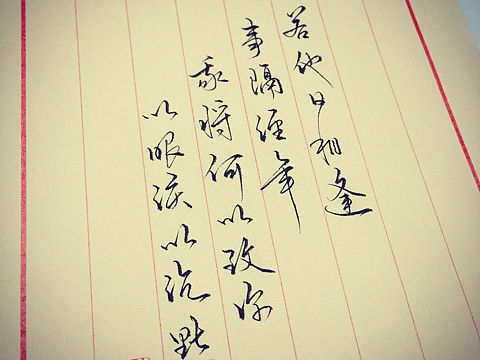 若他日相逢
事隔經年
我將何以致你
以眼淚以沉默